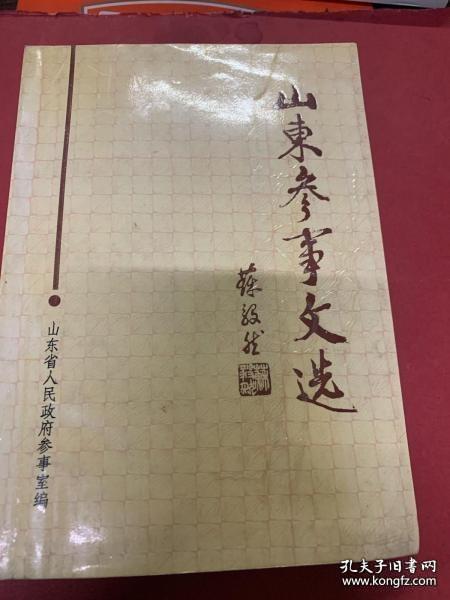 山東参事文选
蘇毅然
山东省人民政府参事室编
孔夫子旧书网
www.kongfz.com